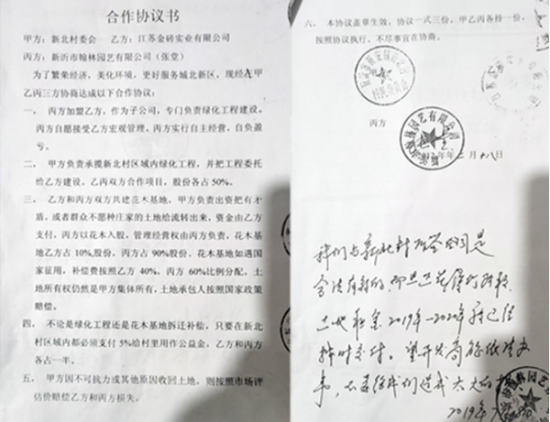 合作协议书
甲方：新北村委会 乙方：江苏金砖实业有限公司
丙方：新沂市翰林园艺有限公司（张堂）
为了繁荣经济，美化环境，更好服务城北新区，现经甲
乙丙三方协商达成以下合作协议：
一、 丙方加盟乙方，作为子公司，专门负责绿化工程建设。
丙方自愿接受乙方宏观管理，丙方实行自主经营，自负盈
亏。
二、 甲方负责承揽新北村区域内绿化工程，并把工程委托
给乙方建设。乙丙双方合作项目，股份各占 50%。
三、 乙方和丙方双方共建花木基地，甲方负责出资把有矛
盾，或者群众不愿种庄家的土地给流转出来，资金由乙方
支付，丙方以花木入股，管理经营权由丙方负责，花木基
地乙方占 10%股份，丙方占 90%股份。花木基地如遇国
家征用，补偿费按照乙方 40%、丙方 60%比例分配，土
地所有权仍然是甲方集体所有，土地承包人按照国家政策
赔偿。
四、 不论是绿化工程还是花木基地拆迁补偿，只要在新北
村区域内都必须支付 5%给村里用作公益金，乙方和丙方
各占一半。
五、 甲方因不可抗力或其他原因收回土地，则按照市场评
估价赔偿乙方和丙方损失。
六、 本协议盖章生效，协议一式三份，甲乙丙各持一份，
按照协议执行，不尽事宜在协商。
丙方
园艺有限公司
月十八日
我们与新北村
合法有效的，
土地租金2019年—2020年我已经
按时支付。望开发商能依法办
事，
2019年